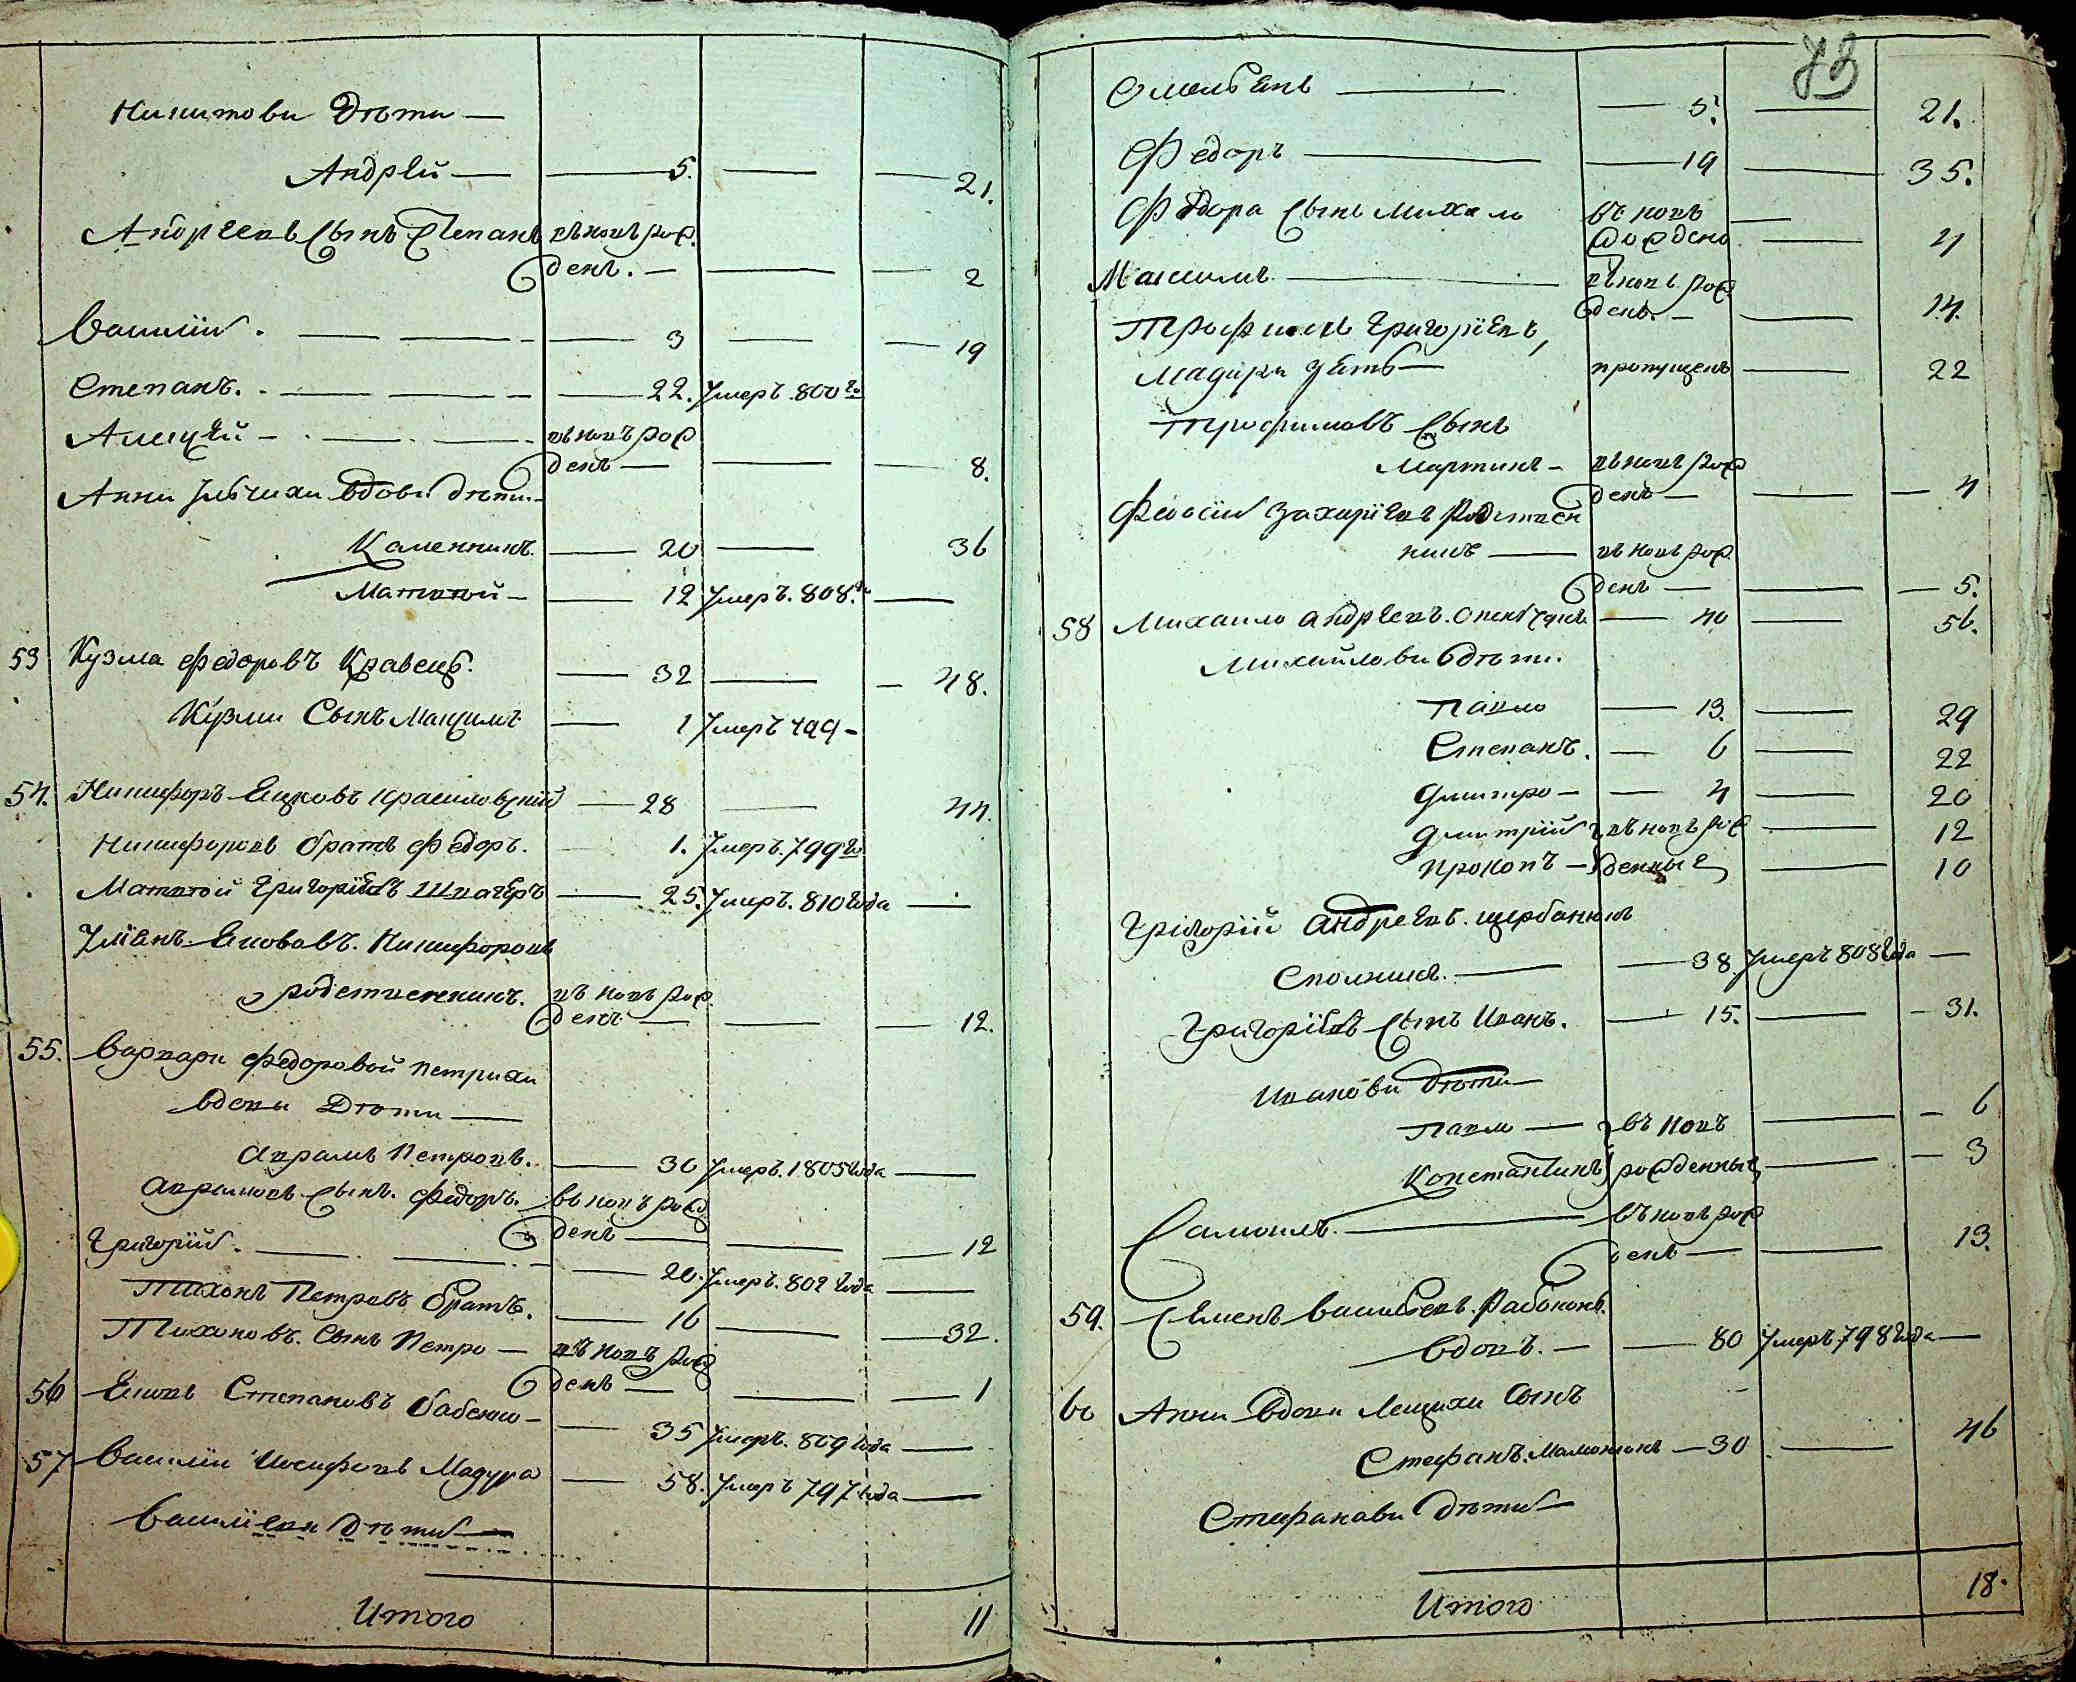 Никитови дѣти —
Андрей — 5. — 21.
Андреевъ сынъ Степанъ въ новъ рож
денъ. — — 2
Василій. — 3 — 19
Степанъ. — 22. Умеръ. 800 го
Алексѣй — въ новъ рож
денъ — — 8.
Анни вдови дѣти —
Каленикъ. — 20 — 36
Матвѣй — 12 Умеръ. 808. го —
53 Кузма Федоровъ Кравецъ. — 32 — 48.
Кузми Сынъ Максимъ — 1 Умеръ 799 —
54. Никифоръ Яцковъ Красиловский — 28 — 44.
Никифоровъ братъ Федоръ. 1. Умеръ. 799 го
Матвѣй Григорїевъ Швагеръ — 25. Умеръ. 810 года —
Улїанъ Яковавъ. Никифоровъ
родственникъ. въ новъ рож
денъ — — 12.
55. Варвари Федоровой Петрихи
вдовы Дѣти —
Аврамъ Петровъ. — 30 Умеръ. 1805 года —
Аврамовъ сынъ. Федоръ. въ новъ рож
денъ — — 12
Григорїй. — 20. Умеръ. 802 года —
Тихонъ Петровъ братъ. — 16 — 32.
Тихоновъ. Сынъ Петро — въ новъ рож
денъ — — 1
56 Яковъ Степановъ бабенко — 35 Умеръ. 809 года —
57 Василїй Иосифовъ Мадура — 58. Умеръ 797 года —
Василїеви дѣти —
Итого 11
73
Омелѣянъ — 5. — 21.
Федоръ — 19 — 35.
Федора сынъ Михайло въ новъ —
рожденъ — 4
Максимъ — въ новъ рож
денъ. — — 14.
Трофимъ Григорїевъ,
Мадури зять — пропущенъ — 22
Трофимовъ сынъ
Мартинъ — въ новъ рож
денъ — — 4
Феѡсїй Захарїевъ Родствен
никъ — въ новъ рож
денъ — — 5.
58 Михайло Андреевъ. — 40 — 56.
Михайлови дѣти.
Павло — 13. — 29
Степанъ. — 6 — 22
Дмитро — 4 — 20
Дмитрїй въ новъ рож — 12
Прокопъ — денные — 10
Грїгорїй Андреевъ. щербанюкъ
Сполникъ. — 38 Умеръ 808 года —
Григорїевъ сынъ Иванъ. — 15. — 31.
Иванови дѣти —
Павло — въ новъ — 6
Константинъ рожденныя — 3
Самоилъ. — въ новъ рож
денъ — — 13.
59. Семенъ Василѣевъ.
Вдовъ. — 80 Умеръ 798 года —
60 Анни Вдови Лещихи Сынъ
Стефанъ. — 30 — 46
Стефанови дѣти —
Итого 18.